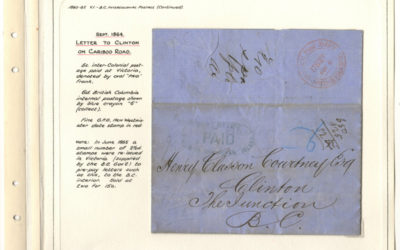 1860-65 V.I.-B.C. INTERCOLONIAL POSTAGE (Continued)
SEPT. 1864.
LETTER TO CLINTON
ON CARIBOO ROAD.
5c inter-Colonial post-
age paid at Victoria,
denoted by oval "PAID"
Frank.
6d. British Columbia
internal postage shown
by blue crayon "6"
(collect).
Fine G.P.O. New Westmin-
ster date stamp in red
NOTE: In June 1865 a
small number of 2½d.
stamps were re-issued
in Victoria (supplied
by the B.C. Gov't) to
pre-pay letters such
as this, to the B.C.
interior. Sold at
PAID
Henry Classon Courtney Esq
Clinton
The Junction
B.C.